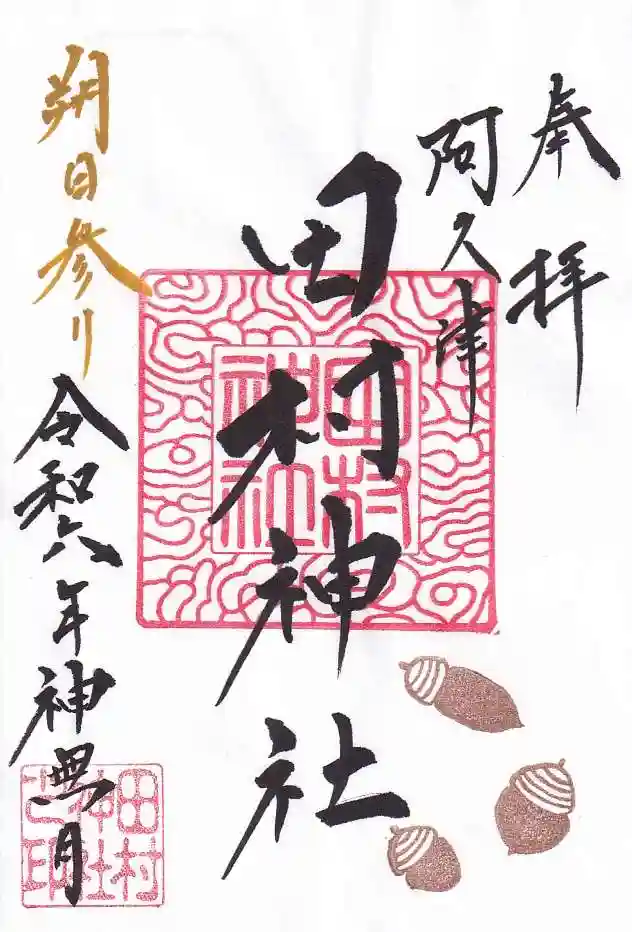 奉拝
阿久津
田村神社
田村神社
朔日参り
令和六年神無月
田村神社之印